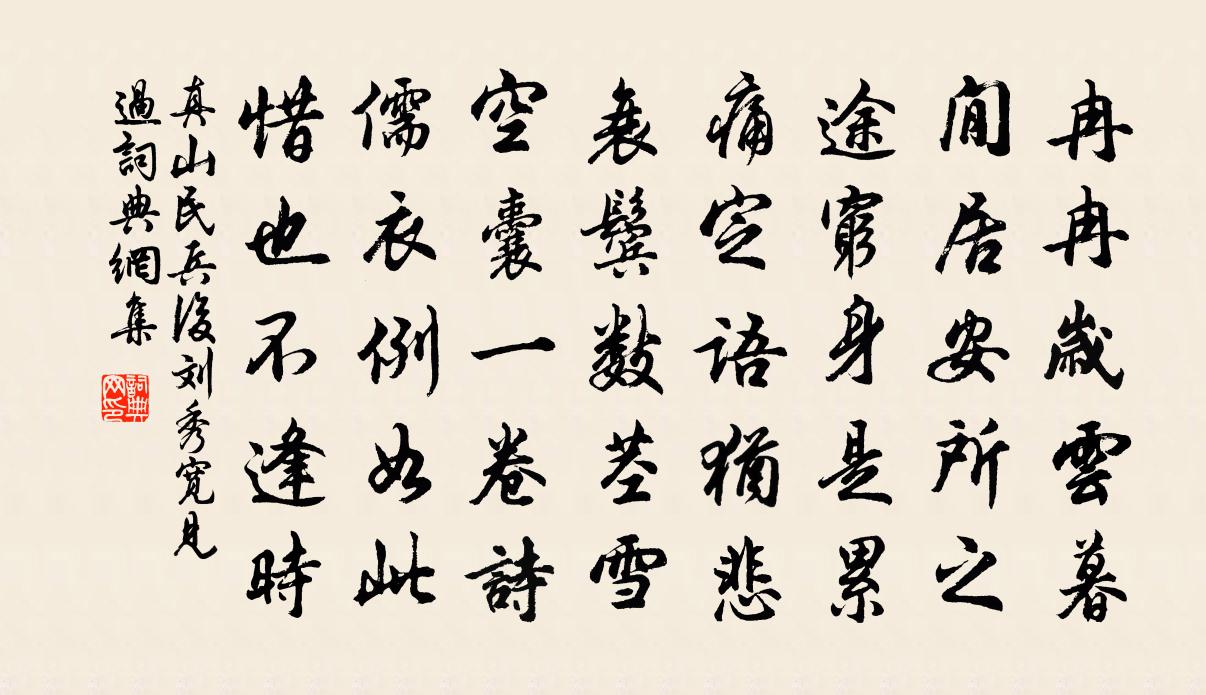 冉冉歲雲暮
閒居安所之
途窮身是累
痛定語猶悲
衰鬢數莖雪
空囊一卷詩
儒衣例如此
惜也不逢時
真山民兵後刘秀寬見
過詞典網集
詞典网印